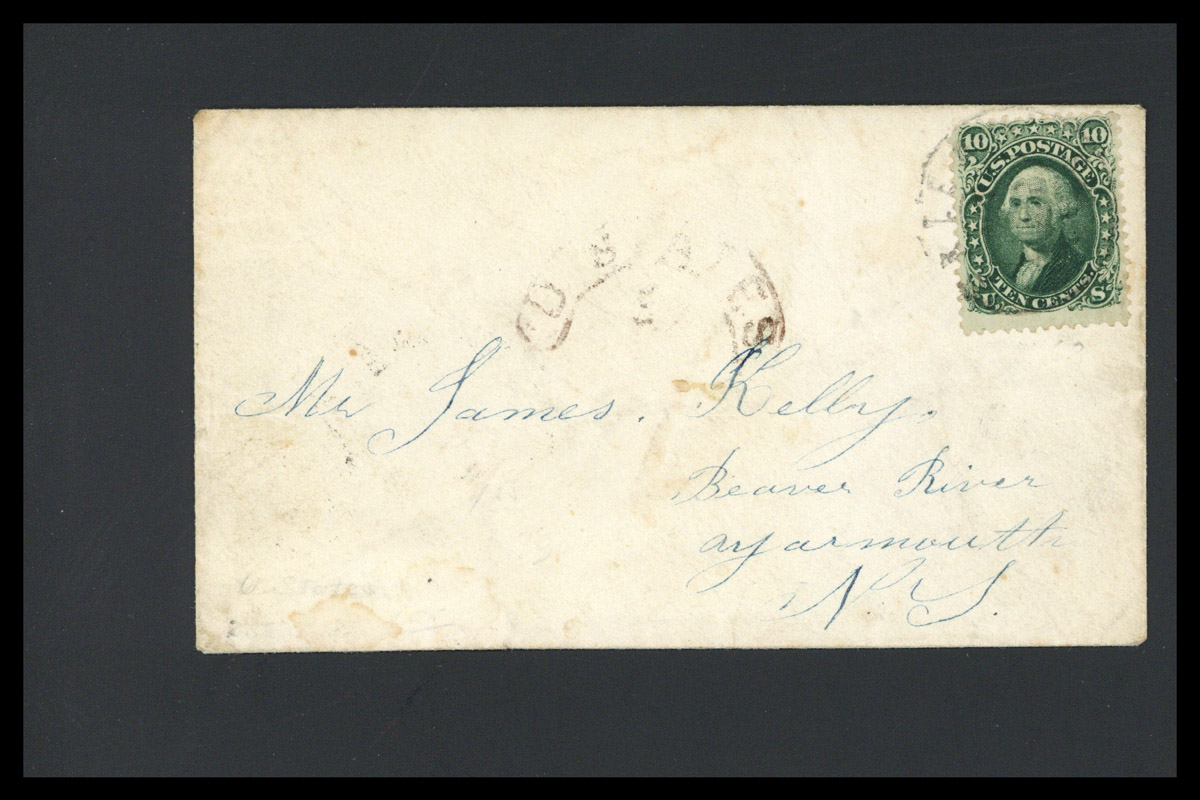 10 10
U.S. POSTAGE
TEN CENTS.
U. S.
Mr James. Kelly.
Beaver River
ayarmouth
N S.
U. States